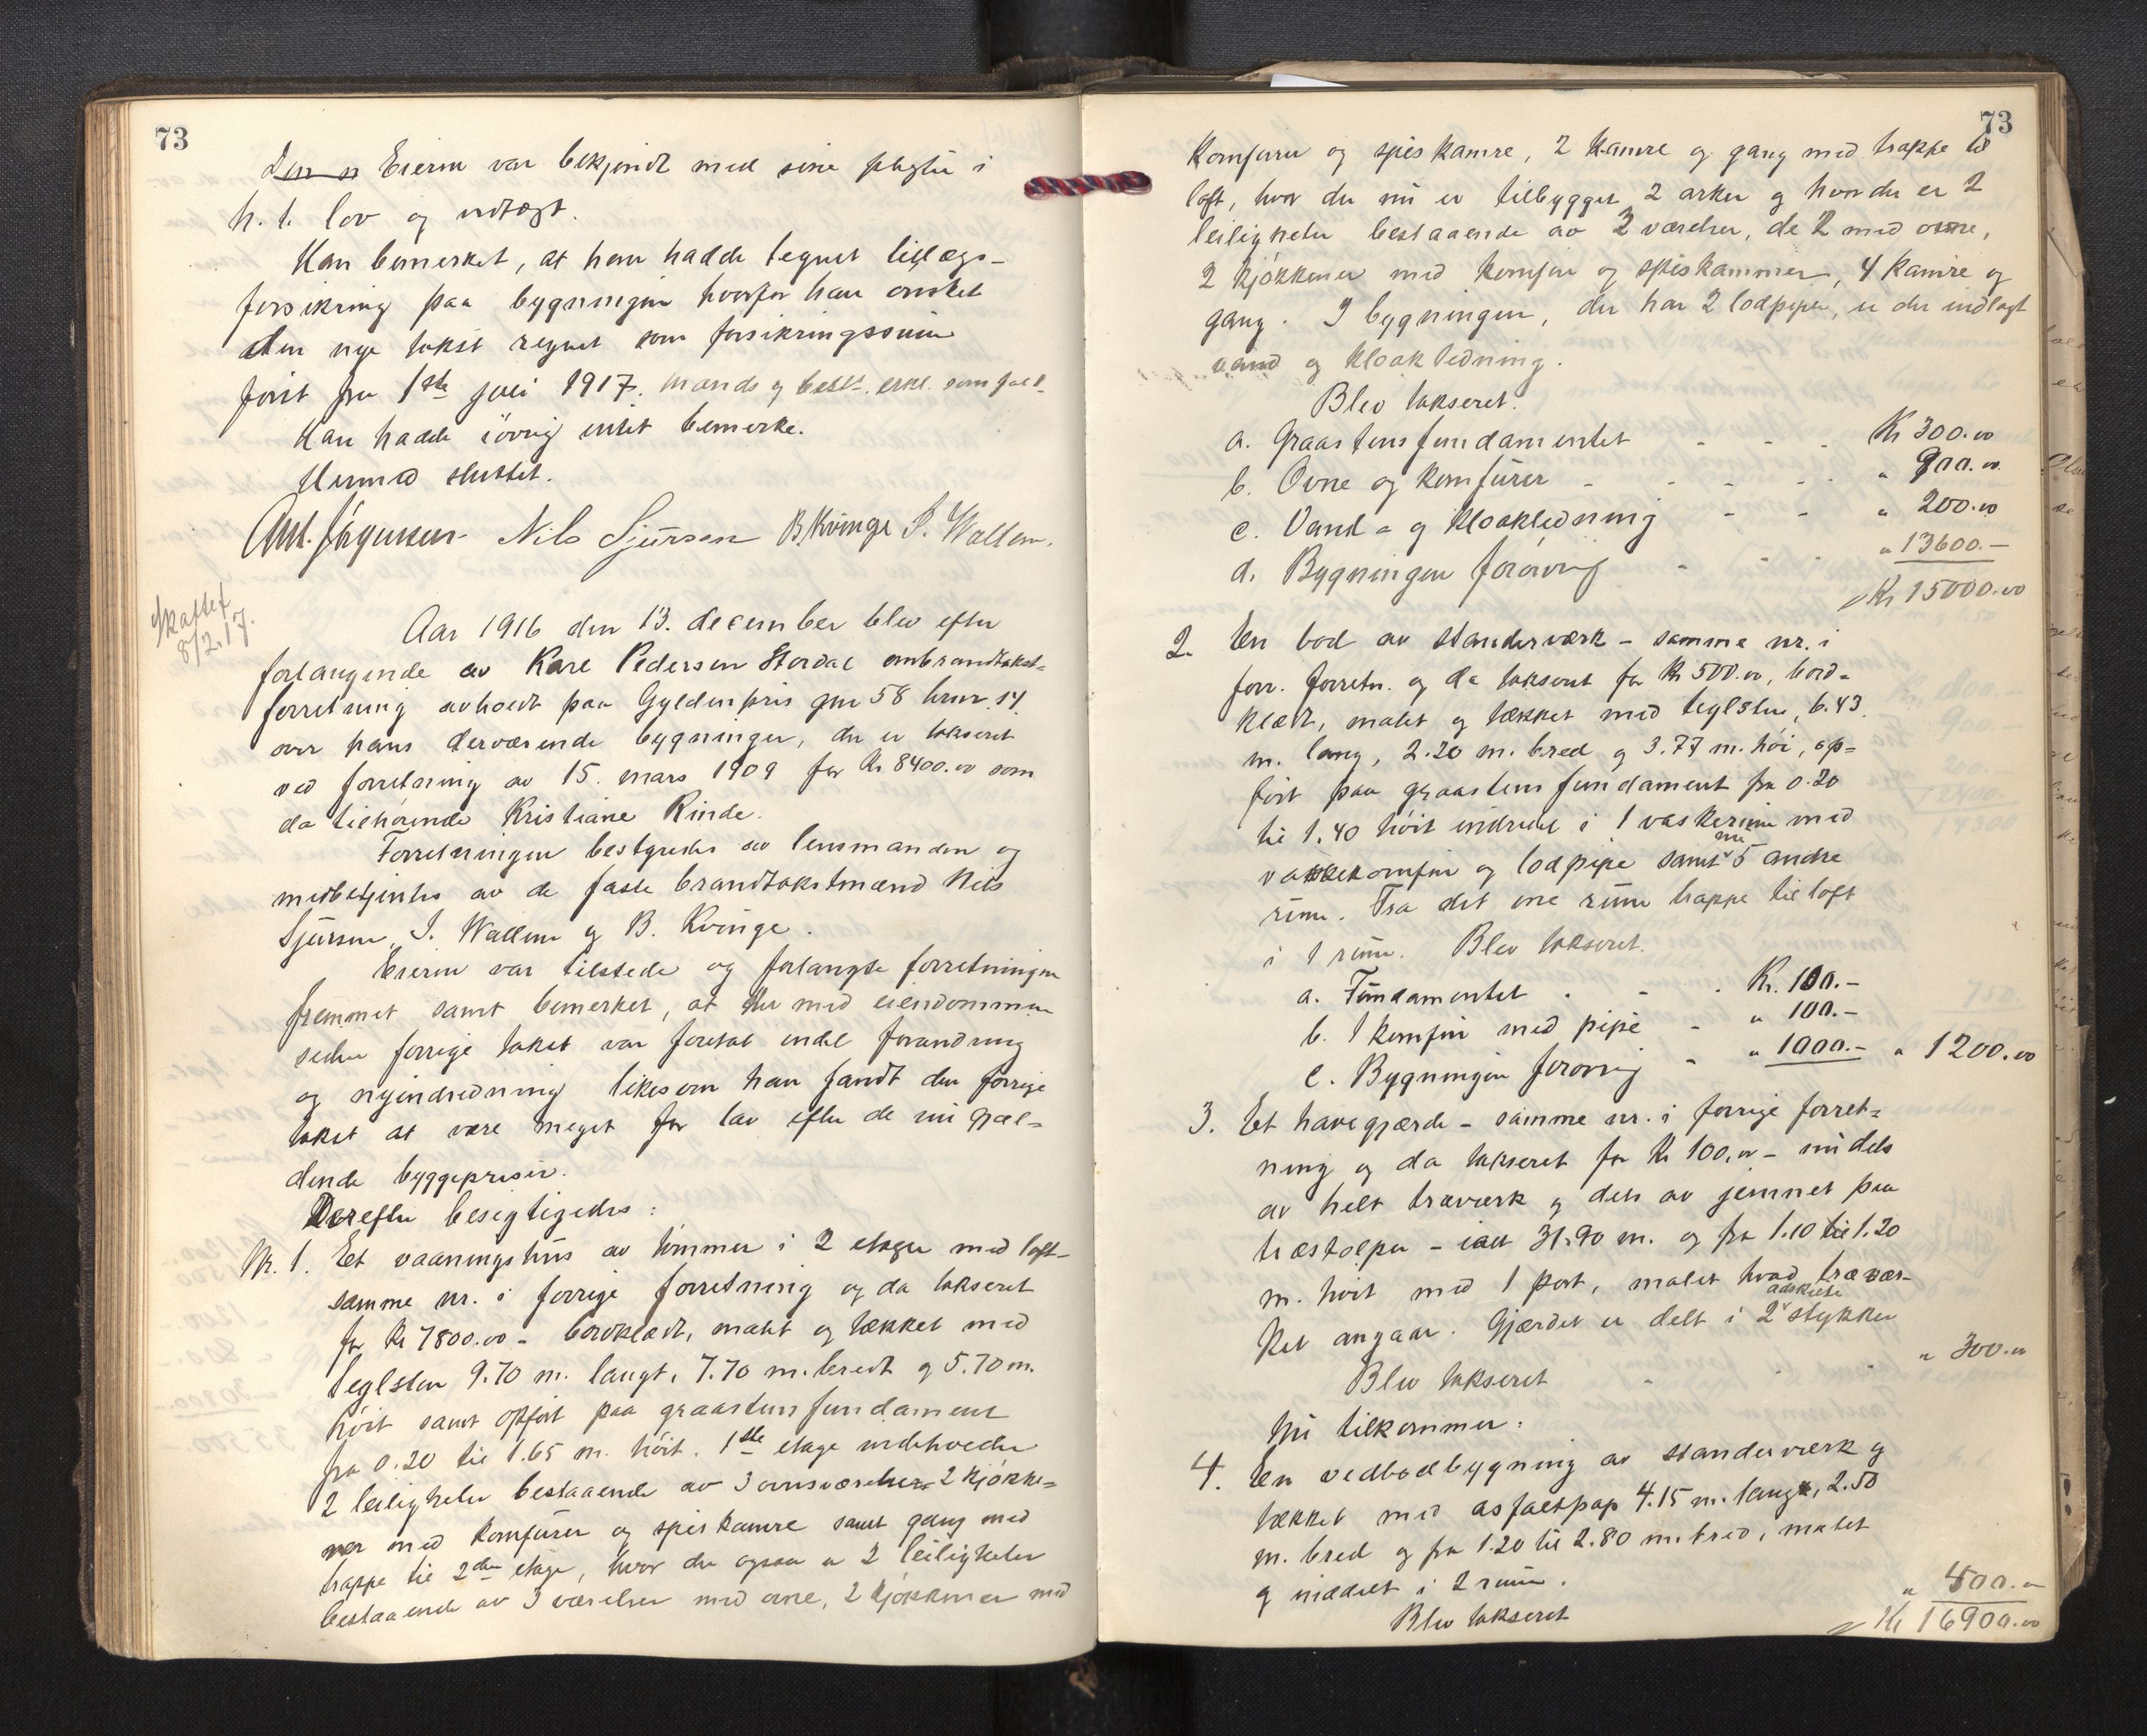 73
Eieren var bekjendt med sine pligter i
h. t. lov og vedtægt.
Han bemerket, at han hadde tegnet tillægs-
forsikring paa bygningen hvorfor han ønsket
den nye takst regnet som forsikringssum
først fra 1ste juli 1917. Mænds og best. erkl. som
Han hadde iøvrig intet bemerke.
Hermed sluttet.
Ant. Jørgensen Nils Sjursen B. Kvinge I. Wallem.
Skattef
8/2.17.
Aar 1916 den 13. december blev efter
forlangende av Karl Pedersen Stordal ombrandtakst-
forretning avholdt paa Gyldenpris gnr 58 brnr. 14
over hans derværende bygninger, der er takseret
ved forretning av 15. mars 1909 for Kr 8400.00 som
da tilhørende Kristiane Rinde.
Forretningen bestyredes av lensmanden og
medbetjentes av de faste brandtakstmænd Nils
Sjursen, I. Wallem og B. Kvinge.
Eieren var tilstede og forlangte forretningen
fremmet samt bemerket, at der med eiendommen
siden forrige takst var foretat endel forandring
og nyindredning likesom han fandt den forrige
takst at være meget for lav efter de nu gjæl-
dende byggepriser.
Derefter besigtigedes:
Nr. 1. Et vaaningshus av tømmer i 2 etager med loft-
samme nr. i forrige forretning og da takseret
for Kr 7800.00 - bordklædt, malet og tækket med
teglsten 9.70 m. langt, 7.70 m. bredt og 5.70 m.
høit samt opført paa graastensfundament
fra 0.20 til 1.65 m. høit. 1ste etage indeholder
2 leiligheter bestaaende av 3 ovnsværelser 2 kjøkke-
ner med komfurer og spiskamre samt gang med
trappe til 2den etage, hvor der ogsaa er 2 leiligheter
bestaaende av 3 værelser med ovne, 2 kjøkkener med
73
Komfurer og spiskamre, 2 kamre og gang med trappe til
loft, hvor der nu er tilbygget 2 arker og hvor der er 2
leiligheter bestaaende av 2 værelser, de 2 med ovne,
2 kjøkkener med komfur og spiskammer, 4 kamre og
gang. I bygningen, der har 2 lodpiper, er der indlagt
vand og kloakledning.
Blev takseret.
a. Graastensfundamentet - - - Kr 300.00
b. Ovne og komfurer - - - - " 900.00
c. Vand- og kloakledning - - " 200.00
d. Bygningen forøvrig - - - " 13600.-
Kr 15000.00
2. En bod av stenderværk - samme nr. i
forr. forretn. og da takseret for Kr 500.00, bord-
klædt, malet og tækket med teglsten, 6.43
m. lang, 2.20 m. bred og 3.77 m. høi, op-
ført paa graastensfundament fra 0.20
til 1.40 høit indredet i 1 vaskerum med
vaskekomfur og lodpipe samt nu 5 andre
rum. Fra det ene rum trappe til loft
i 1 rum. Blev takseret.
a. Fundamentet . - . Kr. 100.-
b. 1 komfur med pipe - " 100.-
c. Bygningen forøvrig - " 1000.- " 1200.00
3. Et havegjærde - samme nr. i forrige forret-
ning og da takseret for Kr 100.00 - nu dels
av helt træværk og dels av jernnet paa
træstolper - ialt 31.90 m. og fra 1.10 til 1.20
m. høit med 1 port, malet hvad trævær-
ket angaar. Gjærdet er delt i 2 adskilte stykker
Blev takseret - - - " 300.00
Nu tilkommer:
4. En vedbodbygning av stenderværk og
tækket med asfaltpap 4.15 m. lang, 2.50
m. bred og fra 1.20 til 2.80 m. bred, malet
og inddelt i 2 rum.
Blev takseret " 400.00
Kr 16900.00